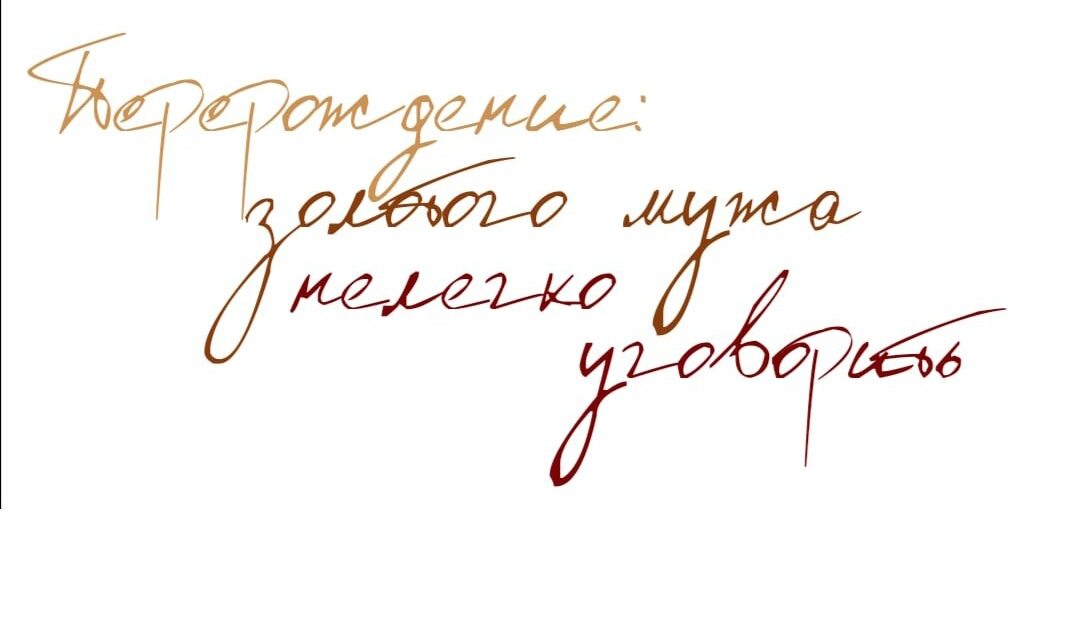 Перерождение:
золотого мужа
нелегко
уговорить